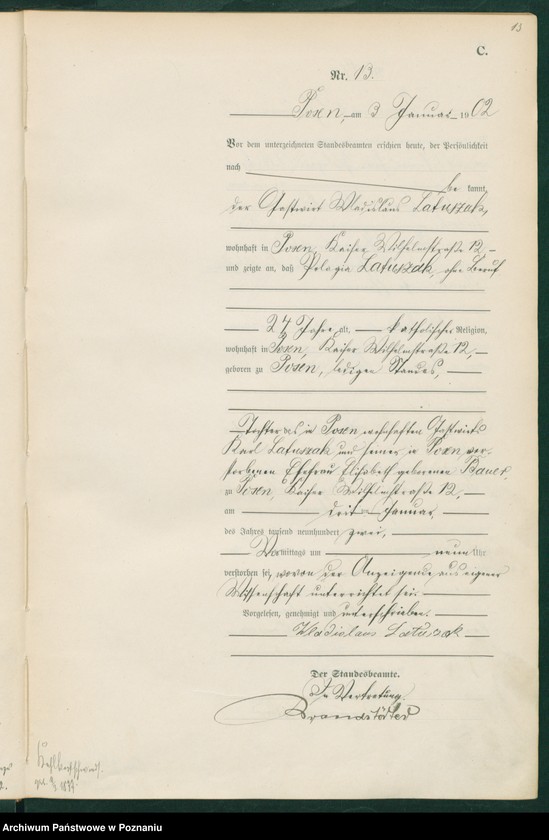 13
C.
Nr. 13.
Posen, am 3 Januar 1902
Vor dem unterzeichneten Standesbeamten erschien heute, der Persönlichkeit
nach
be kannt,
der Gastwirt Wladislaus Latuszak,
wohnhaft in Posen, Kaiser Wilhelmstraße 12,
und zeigte an, daß Pelagia Latuszak, ohne Beruf
24 Jahre alt, katholischer Religion,
wohnhaft in Posen, Kaiser Wilhelmstraße 12,
geboren zu Posen, ledigen Standes,
Tochter des in Posen wohnhaften Gastwirts
Karl Latuszak und seiner in Posen ver-
storbenen Ehefrau Elisabeth geborenen Bauer,
zu Posen, Kaiser Wilhelmstraße 12,
am drei Januar,
des Jahres tausend neunhundert zwei,
Vormittags um neun Uhr
verstorben sei, wovon der Anzeigende aus eigener
Wissenschaft unterrichtet sei.
Vorgelesen, genehmigt und unterschrieben.
Wladislaus Latuszak
Der Standesbeamte.
In Vertretung.
Brandstädter
Archiwum Państwowe w Poznaniu